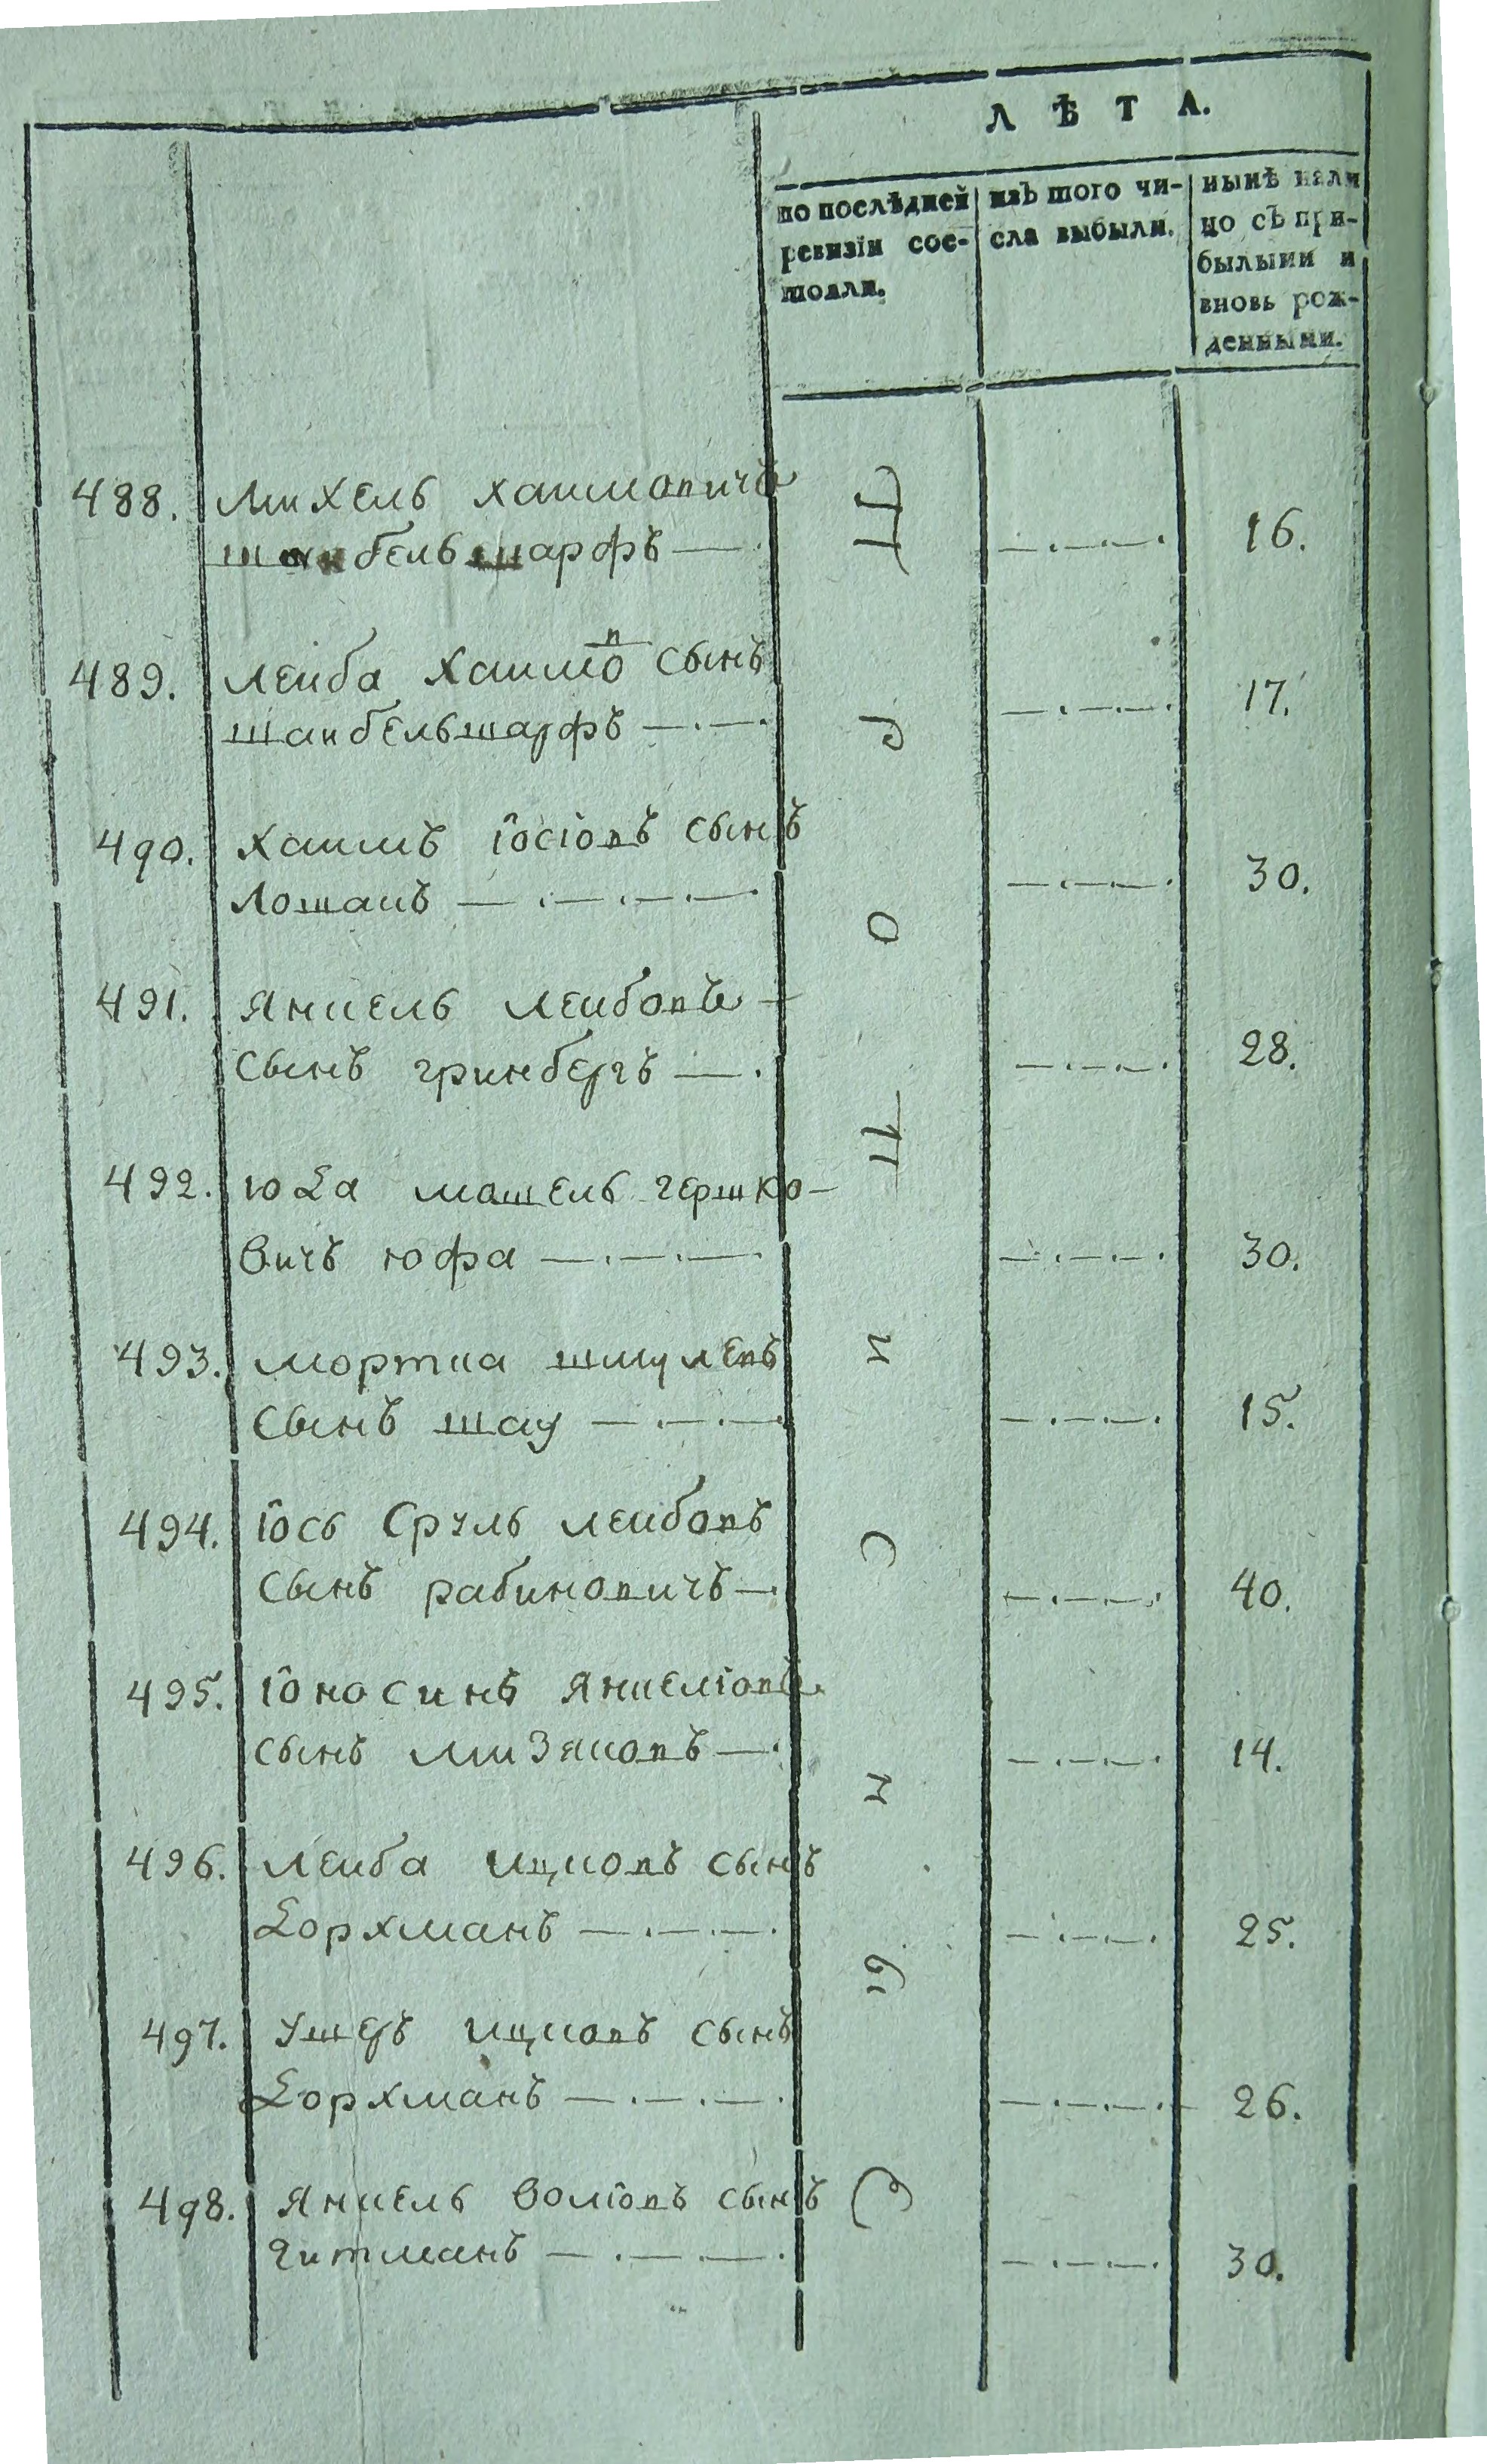 ЛѢТА.
по послѣдней ревизіи состояли.
изъ того числа выбыли.
нынѣ налицо съ прибылыми и вновь рожденными.
488. Михель хаимовичъ
шаибельшарфъ — . 16.
489. леиба хаимов сынъ
шаибельшарфъ — . — . 17.
490. хаимъ іосіовъ сынъ
Лошакъ — . — . — . — . 30.
491. янкель леибовъ —
сынъ гринбергъ — . 28.
492. юда мошель гершко-
вичъ юфа — . — . — . 30.
493. мортка шмулевъ
сынъ шау — . — . — . 15.
494. іось сруль леибовъ
сынъ рабиновичъ — . 40.
495. іоносинъ янкеліовъ
сынъ мизяковъ — . 14.
496. леиба ицковъ сынъ
дорхманъ — . — . — . 25.
497. ушеръ ицковъ сынъ
дорхманъ — . — . — . 26.
498. янкель воліовъ сынъ
гитманъ — . — . — . 30.